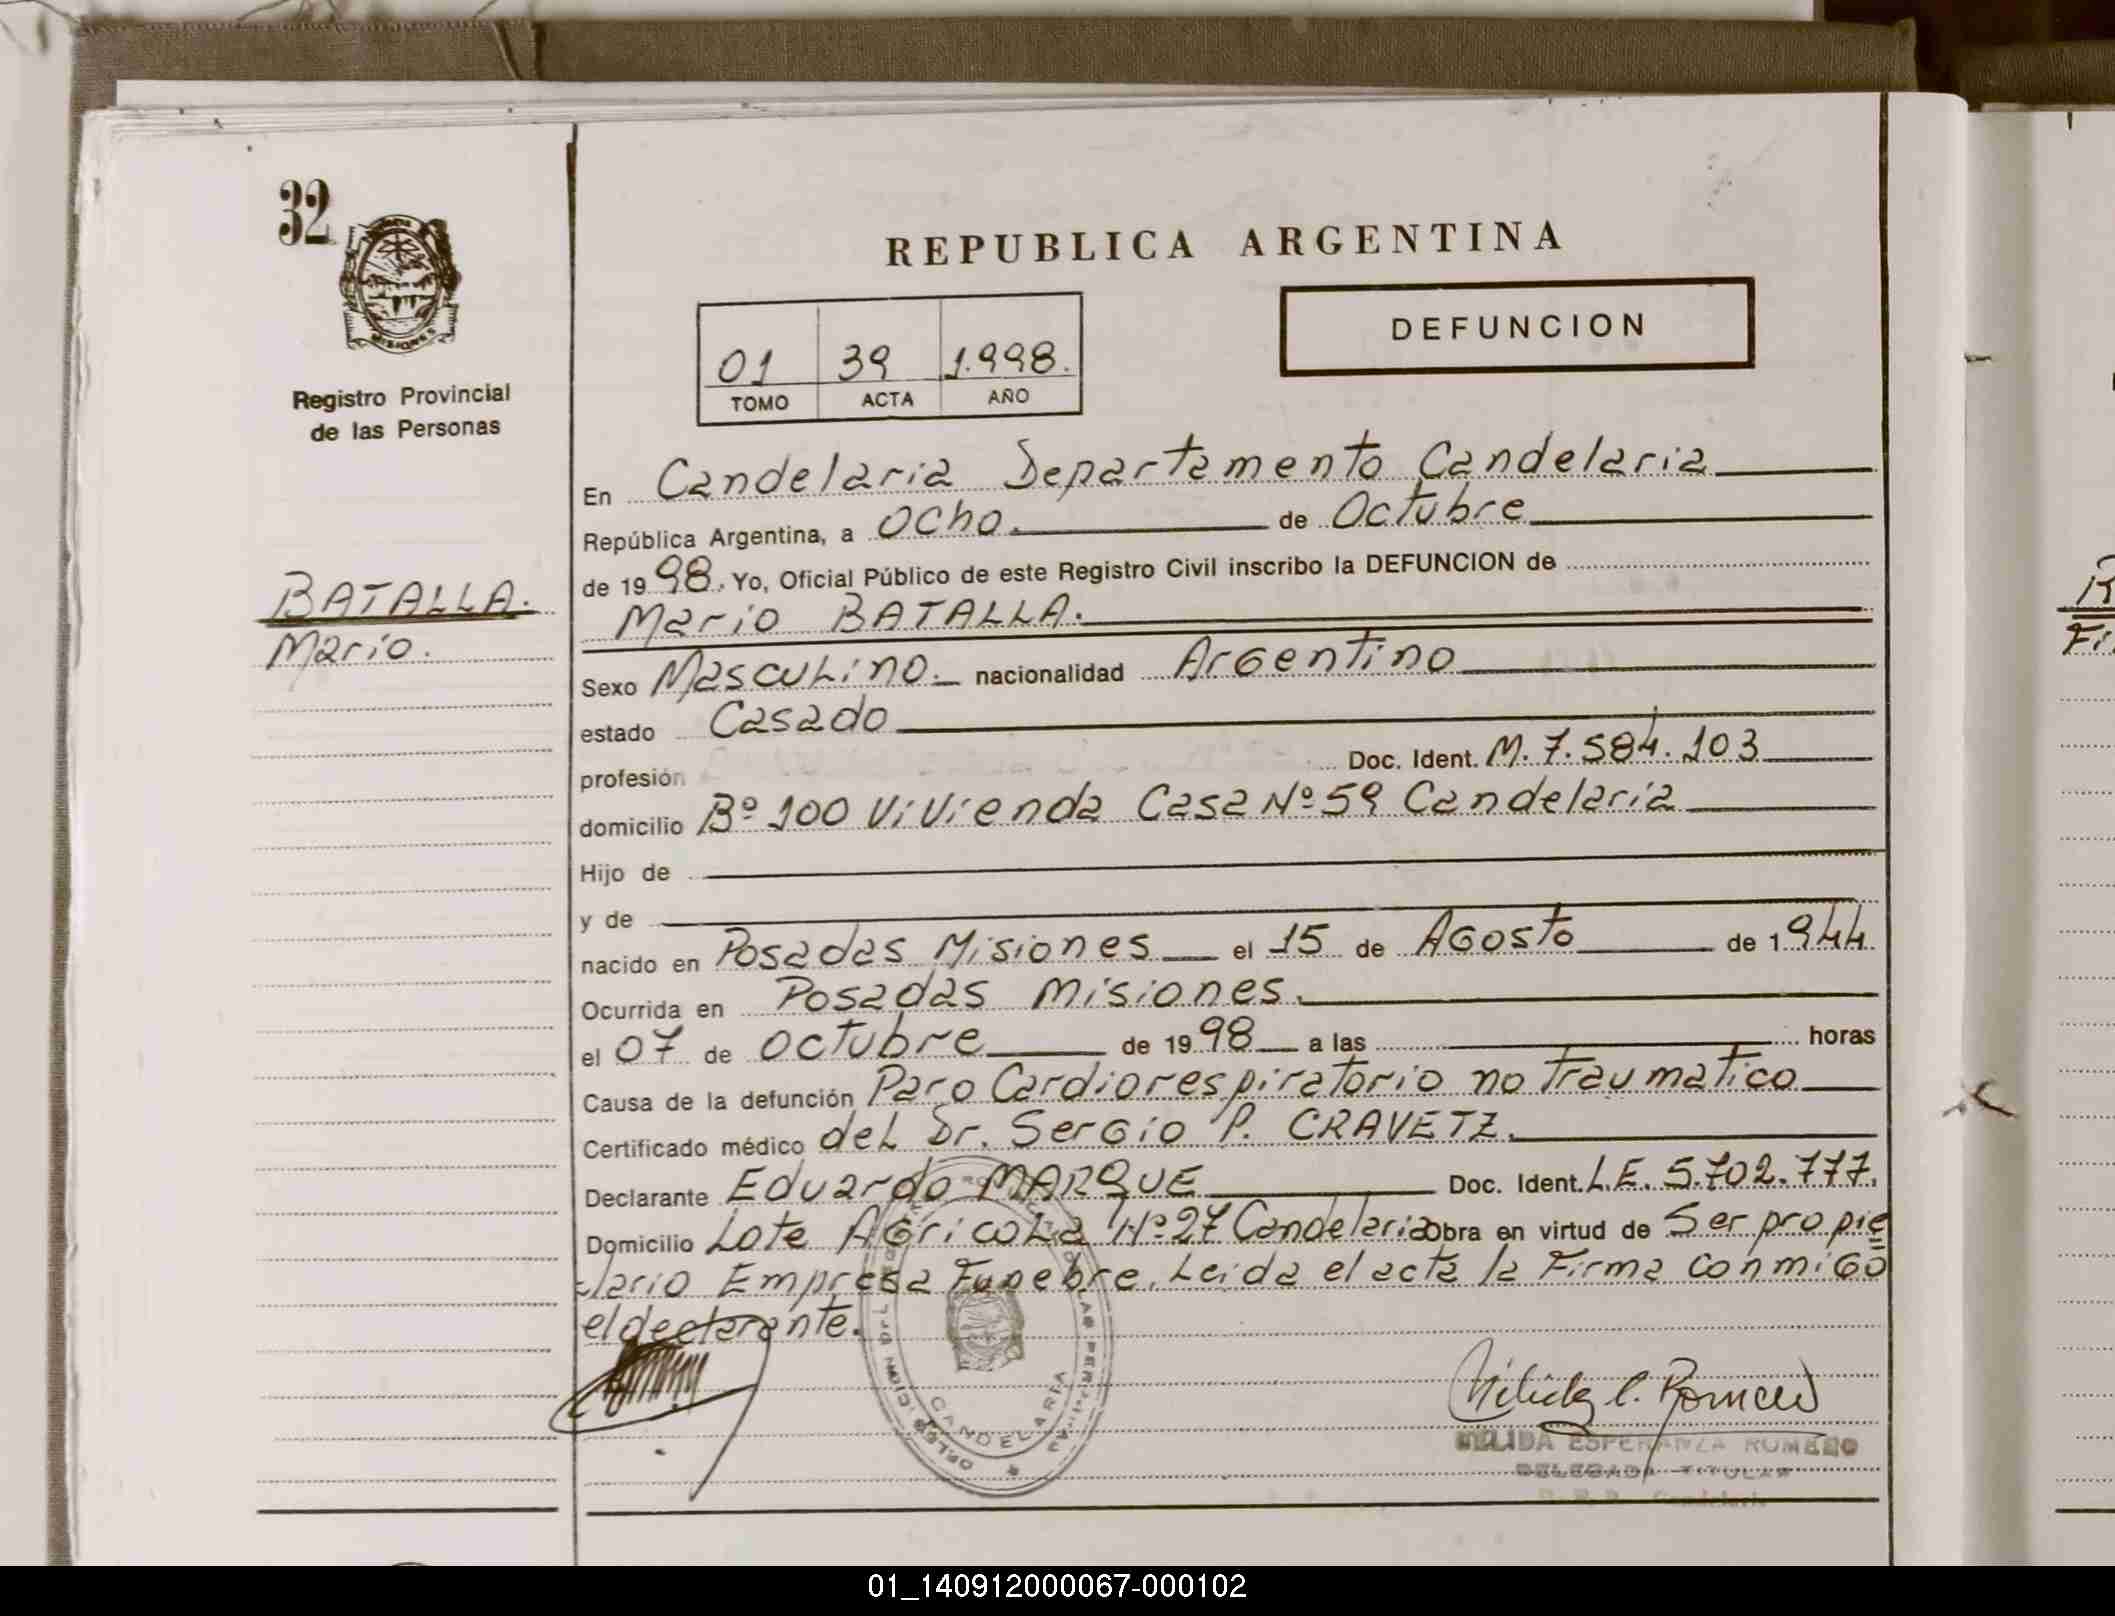 32
MISIONES
Registro Provincial
de las Personas
BATALLA.
Mario.
REPUBLICA ARGENTINA
01 39 1.998.
TOMO ACTA AÑO
DEFUNCION
En Candelaria Departamento Candelaria
República Argentina, a ocho. de Octubre
de 1998. Yo, Oficial Público de este Registro Civil inscribo la DEFUNCION de
Mario BATALLA.
Sexo Masculino. nacionalidad Argentino
estado Casado
profesión Doc. Ident. M. 7.584.103
domicilio Bº 100 Vivienda Casa Nº 59 Candelaria
Hijo de
y de
nacido en Posadas Misiones el 15 de Agosto de 1944
Ocurrida en Posadas Misiones.
el 07 de octubre de 1998 a las horas
Causa de la defunción Paro Cardiorespiratorio no Traumatico
Certificado médico del Dr. Sergio P. CRAVETZ.
Declarante Eduardo MARQUE Doc. Ident. L.E. 5.702.777.
Domicilio Lote Agricola Nº 27 Candelaria Obra en virtud de Ser propie
tario Empresa Funebre. Leida el acta la Firma conmigo
el declarante.
CANDELARIA
NELIDA ESPERANZA ROMERO
DELEGADA TITULAR
Candelaria
R
Fi
01_140912000067-000102